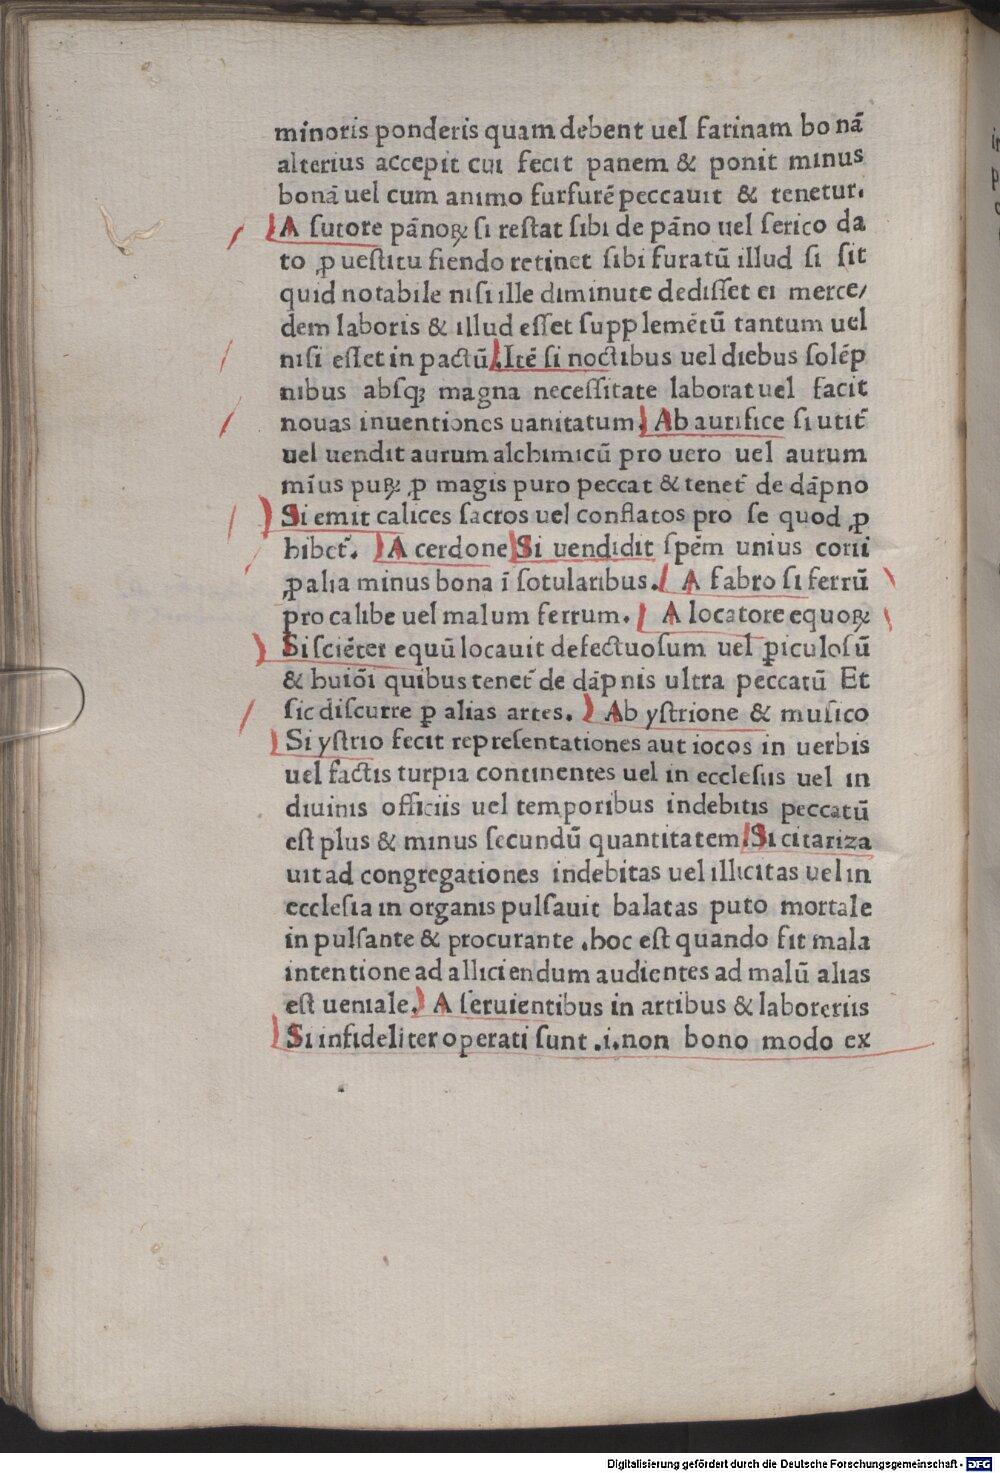 minoris ponderis quam debent uel farinam bonā
alterius accepit cui fecit panem & ponit minus
bonā uel cum animo furfurē peccauit & tenetur.
A sutore pānoꝝ si restat sibi de pāno uel serico da
to ꝓ uestitu fiendo retinet sibi furatū illud si sit
quid notabile nisi ille diminute dedisset ei merce/
dem laboris & illud esset supplemētū tantum uel
nisi esset in pactū. Itē si noctibus uel diebus solēp
nibus absqꝫ magna necessitate laborat uel facit
nouas inuentiones uanitatum. Ab aurifice si utit̄
uel uendit aurum alchimicū pro uero uel aurum
mīus puꝝ ꝓ magis puro peccat & tenet̄ de dāpno
Si emit calices sacros uel conflatos pro se quod ꝓ
hibet̄. A cerdone Si uendidit spēm unius corii
ꝓ alia minus bona ī sotularibus. A fabro si ferrū
pro calibe uel malum ferrum. A locatore equoꝝ
Si sciēter equū locauit defectuosum uel ꝑiculosū
& huiōi quibus tenet̄ de dāpnis ultra peccatū Et
sic discurre ꝑ alias artes. Ab ystrione & musico
Si ystrio fecit representationes aut iocos in uerbis
uel factis turpia continentes uel in ecclesiis uel in
diuinis officiis uel temporibus indebitis peccatū
est plus & minus secundū quantitatem. Si citariza
uit ad congregationes indebitas uel illicitas uel in
ecclesia in organis pulsauit balatas puto mortale
in pulsante & procurante .hoc est quando fit mala
intentione ad alliciendum audientes ad malū alias
est ueniale. A seruientibus in artibus & laboreriis
Si infideliter operati sunt .i. non bono modo ex
Digitalisierung gefördert durch die Deutsche Forschungsgemeinschaft - DFG